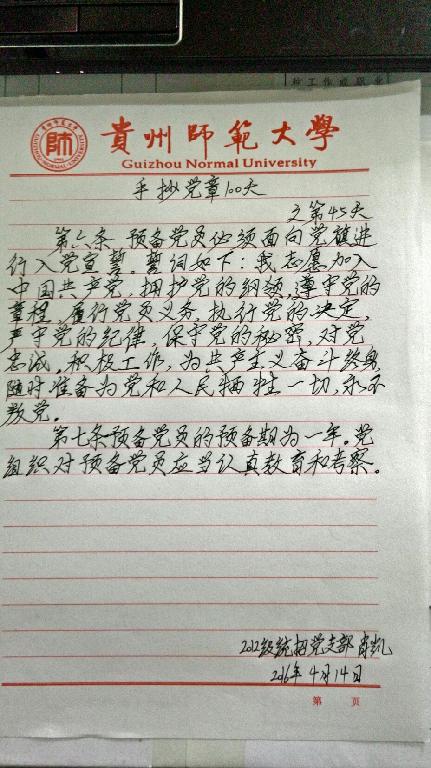 貴州師範大學
Guizhou Normal University
手抄党章100天
之第45天
第六条 预备党员必须面向党旗进
行入党宣誓。誓词如下：我志愿加入
中国共产党，拥护党的纲领，遵守党的
章程，履行党员义务，执行党的决定，
严守党的纪律，保守党的秘密，对党
忠诚，积极工作，为共产主义奋斗终身，
随时准备为党和人民牺牲一切，永不
叛党。
第七条预备党员的预备期为一年。党
组织对预备党员应当认真教育和考察。
2012级统招党支部 肖凯
2016年4月14日
第 页